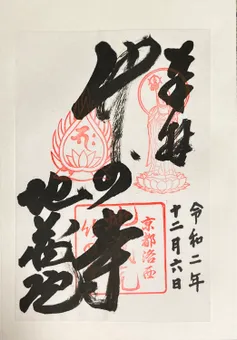 奉拝
令和二年
十二月六日
竹の寺
地蔵院
京都洛西